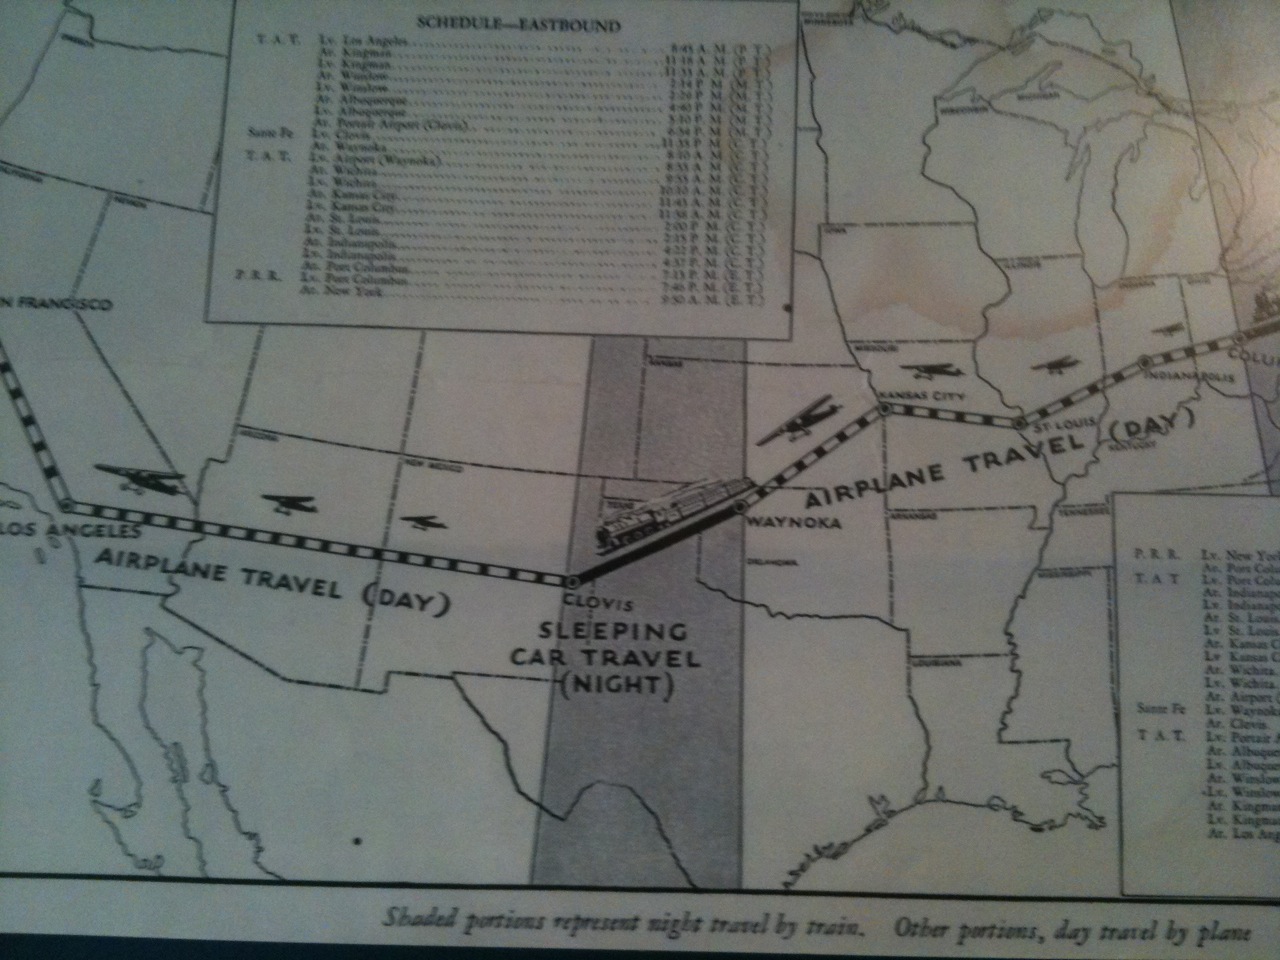 SCHEDULE—EASTBOUND
T. A. T. Lv. Los Angeles 8:45 A. M. (P. T.)
Ar. Kingman 11:18 A. M. (P. T.)
Lv. Kingman 11:33 A. M. (P. T.)
Ar. Winslow 2:14 P. M. (M. T.)
Lv. Winslow P. M. (M. T.)
Ar. Albuquerque P. M. (M. T.)
Lv. Albuquerque P. M. (M. T.)
Ar. Portair Airport (Clovis) 6:54 P. M. (M. T.)
Santa Fe Lv. Clovis 11:35 P. M. (C. T.)
Ar. Waynoka 8:10 A. M. (C. T.)
T. A. T. Lv. Airport (Waynoka) A. M. (C. T.)
Ar. Wichita A. M. (C. T.)
Lv. Wichita 10:10 A. M. (C. T.)
Ar. Kansas City 11:43 A. M. (C. T.)
Lv. Kansas City 11:58 A. M. (C. T.)
Ar. St. Louis 2:00 P. M. (C. T.)
Lv. St. Louis 2:15 P. M. (C. T.)
Ar. Indianapolis 4:22 P. M. (C. T.)
Lv. Indianapolis 4:37 P. M. (C. T.)
Ar. Port Columbus 7:13 P. M. (E. T.)
P. R. R. Lv. Port Columbus 7:46 P. M. (E. T.)
Ar. New York 9:50 A. M. (E. T.)
MINNESOTA
WISCONSIN
MICHIGAN
NEVADA
IOWA
ILLINOIS
INDIANA
OHIO
N FRANCISCO
MISSOURI
KANSAS
COLU
INDIANAPOLIS
KANSAS CITY
ST. LOUIS
KENTUCKY
AIRPLANE TRAVEL (DAY)
ARIZONA
NEW MEXICO
TEXAS
WAYNOKA
ARKANSAS
TENNESSEE
LOS ANGELES
AIRPLANE TRAVEL (DAY)
OKLAHOMA
MISSISSIPPI
CLOVIS
SLEEPING
CAR TRAVEL
(NIGHT)
LOUISIANA
P. R. R. Lv. New York
Ar. Port Col
T. A. T Lv. Port Col
Ar. Indianap
Lv. Indianap
Ar. St. Louis
Lv St. Louis
Ar. Kansas C
Lv Kansas C
Ar. Wichita
Lv. Wichita
Ar. Airport (
Santa Fe Lv. Waynoka
Ar. Clovis
T. A. T. Lv. Portair A
Ar. Albuque
Lv. Albuque
Ar. Winslow
Lv. Winslow
Ar. Kingma
Lv. Kingma
Ar. Los Ang
Shaded portions represent night travel by train. Other portions, day travel by plane